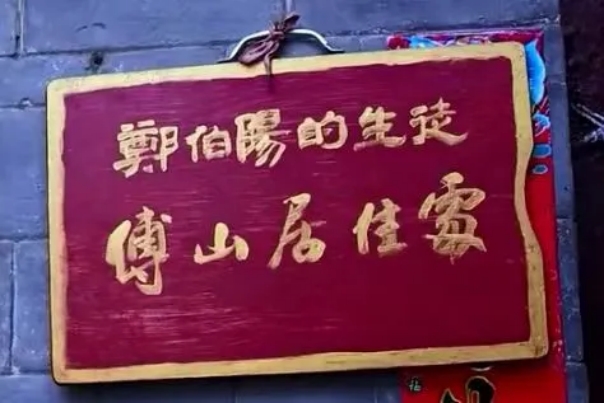 鄭伯陽的生徒
傅山居住處